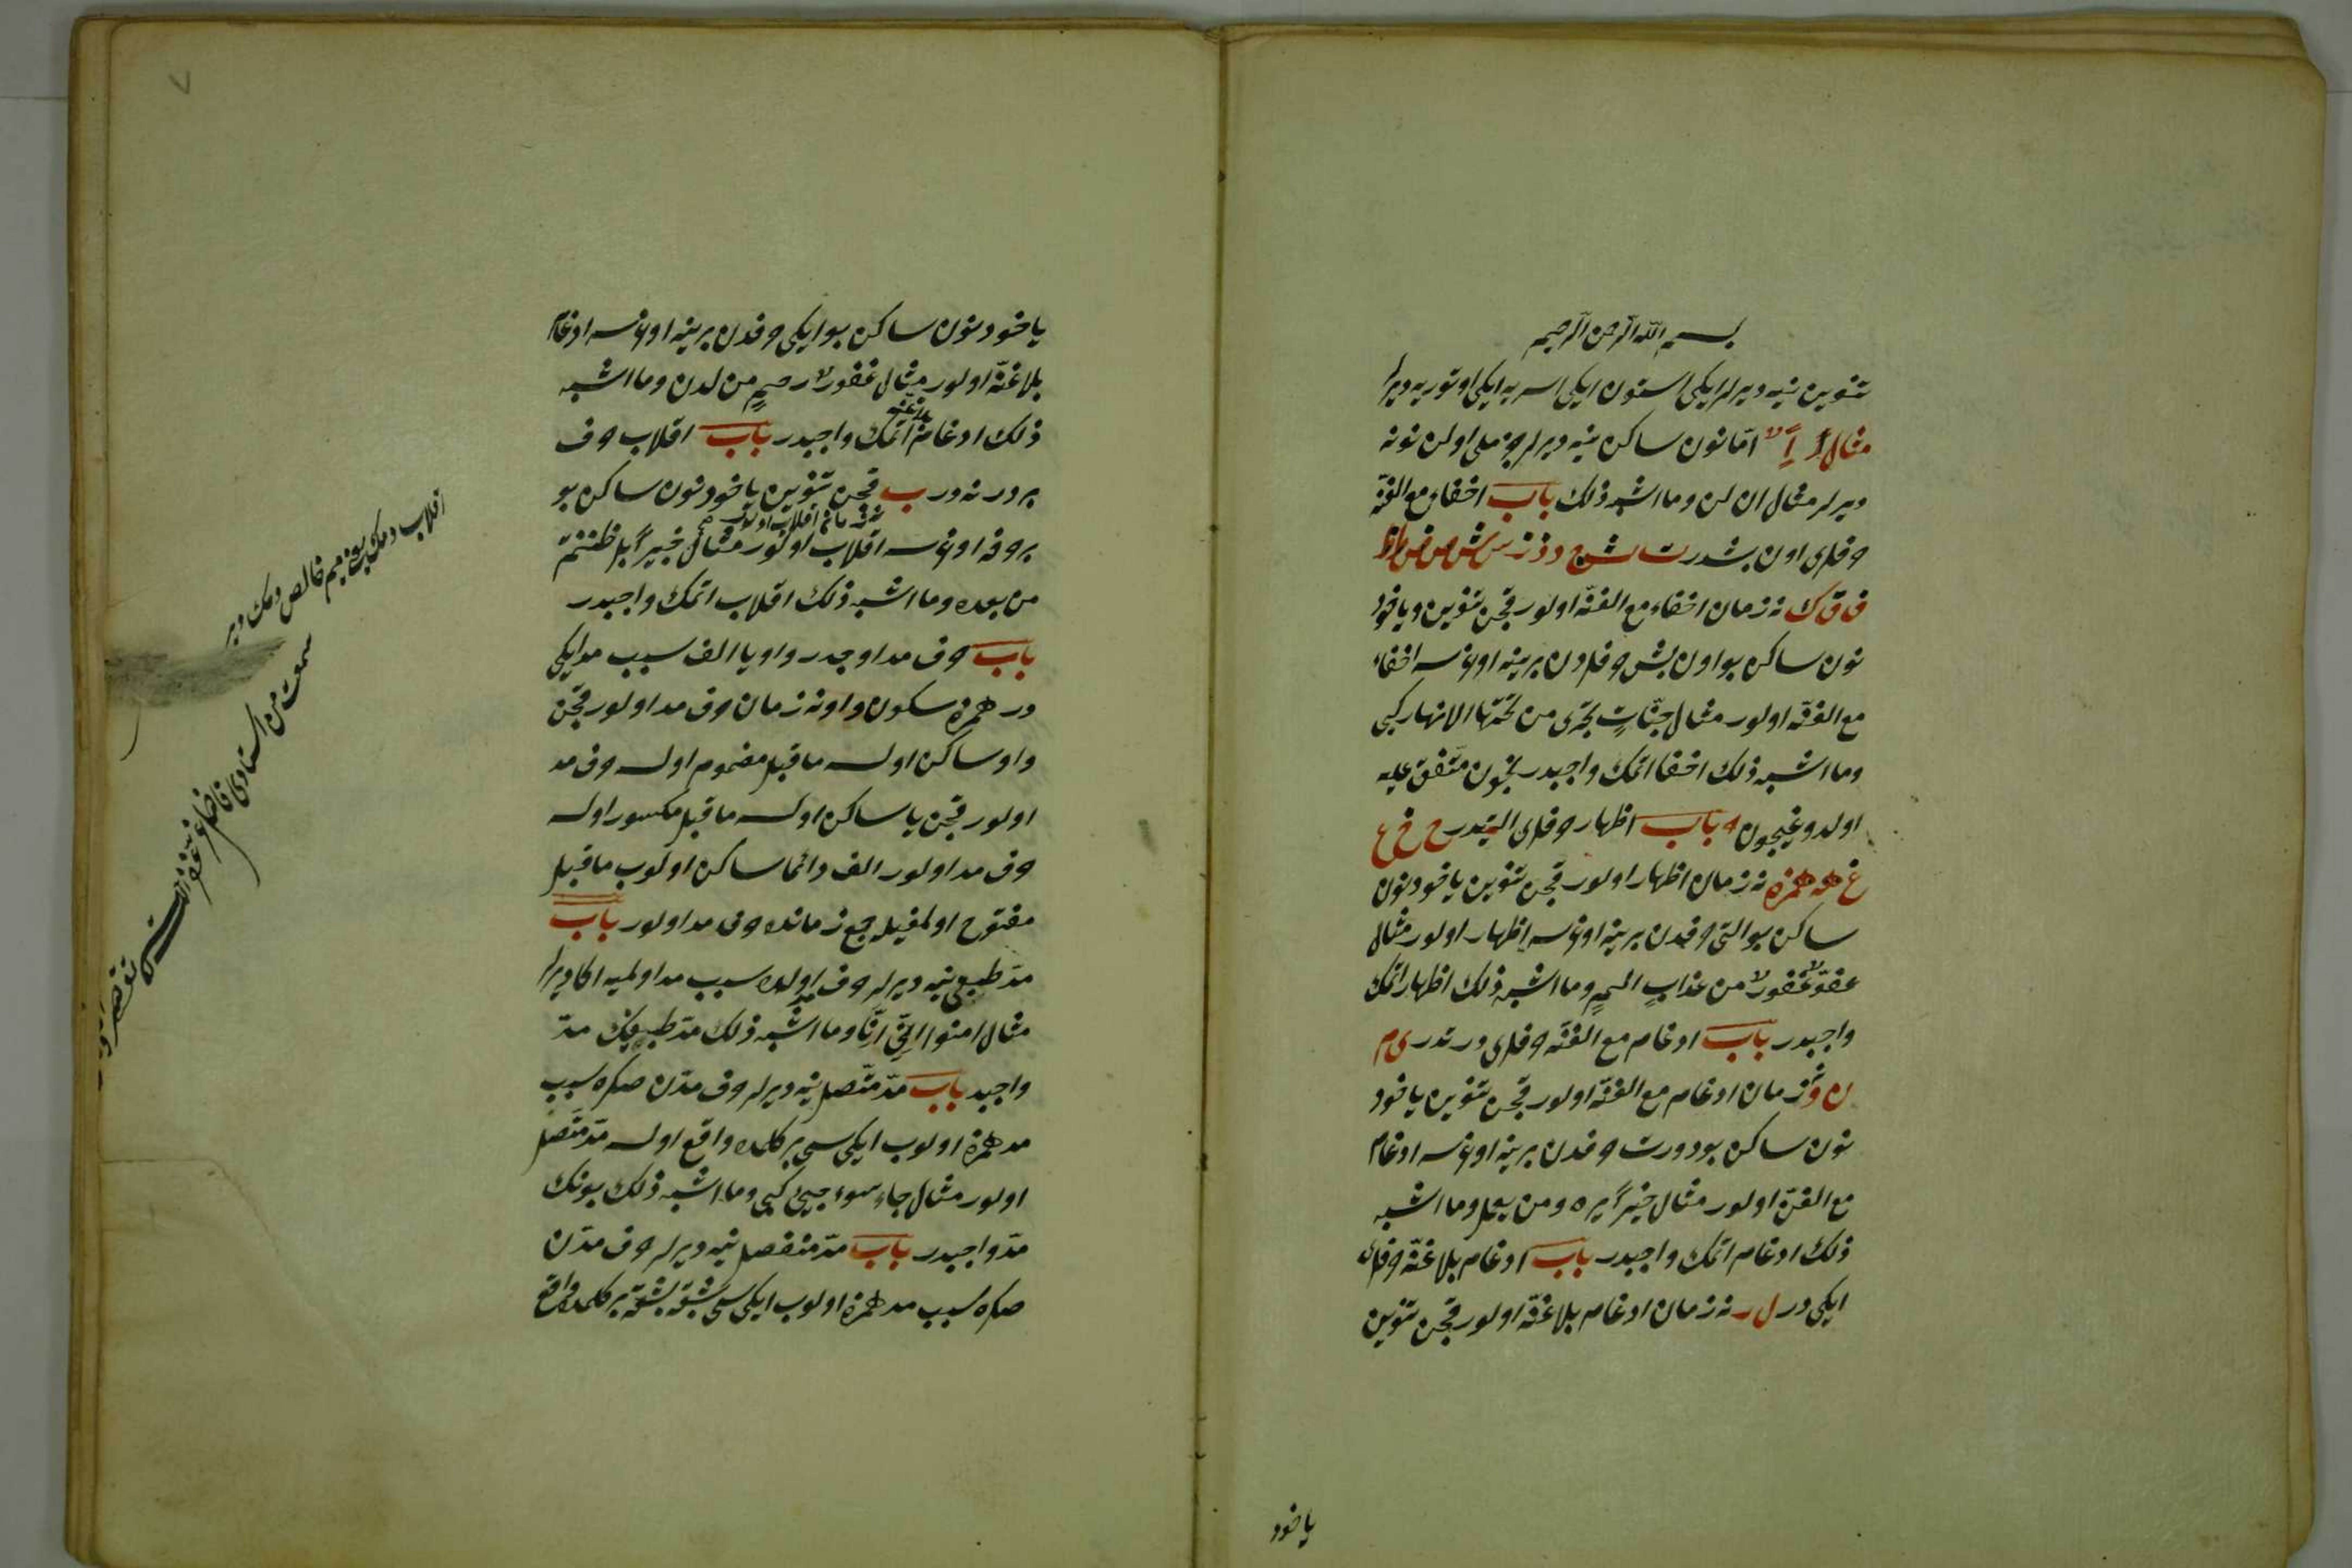 بسم الله الرحمن الرحيم
تنوين نيه ديرلر ايكى استون ايكى اسره ايكى اوتوريه ديرلر
مثال اً اٍ اٌ امّا نون ساكن نيه ديرلر جزملى اولن نونه
ديرلر مثال ان لن وما اشبه ذلك باب اخفاء مع الغنّه
حرفلرى اون بشدر ت ث ج د ذ ز س ش ص ض ط ظ
ف ق ك نه زمان اخفاء مع الغنّه اولور قچن تنوين وياخود
نون ساكن بو اون بش حرفلردن برينه اوغرسه اخفاء
مع الغنّه اولور مثال جنّاتٍ تجرى من تحتها الانهار كبى
وما اشبه ذلك اخفا اتمك واجبدر نچون متّفق عليه
اولدوغيچون باب اظهار حرفلرى التيدر ح خ ع
غ هه همزه نه زمان اظهار اولور قچن تنوين ياخود نون
ساكن بو التى حرفدن برينه اوغرسه اظهار اولور مثال
عفوٌّ غفورٌ من عذابٍ اليمٍ وما اشبه ذلك اظهار اتمك
واجبدر باب ادغام مع الغنّه حرفلرى درتدر ى م
ن و نه زمان ادغام مع الغنّه اولور قچن تنوين ياخود
نون ساكن بو دورت حرفدن برينه اوغرسه ادغام
مع الغنّه اولور مثال خيراً يره ومن يعمل وما اشبه
ذلك ادغام اتمك واجبدر باب ادغام بلا غنّه حرفلرى
ايكى در ل ر نه زمان ادغام بلا غنّه اولور قچن تنوين
ياخود
٧
ياخود نون ساكن بو ايكى حرفدن برينه اوغرسه ادغام
بلا غنّه اولور مثال غفورٌ رحيمٍ من لدن وما اشبه
ذلك ادغام بلا غنه اتمك واجبدر باب اقلاب حرف
بردر نه در ب قچن تنوين ياخود نون ساكن بو
نه زمان اقلاب اولور صح
بر حرفه اوغرسه اقلاب اولور مثال خبيراً بل ظننتم
من بعده وما اشبه ذلك اقلاب اتمك واجبدر
باب حرف مد اوچدر واو يا الف سبب مد ايكى
در همزه سكون واو نه زمان حرف مد اولور قچن
واو ساكن اولسه ماقبل مضموم اولسه حرف مد
اولور قچن يا ساكن اولسه ماقبل مكسور اولسه
حرف مد اولور الف دائما ساكن اولوب ماقبل
مفتوح اولمغيله جمع زمانده حرف مد اولور باب
مدّ طبيعى نيه ديرلر حرف مد اولده سبب مد اولميه اكا ديرلر
مثال امنوا الّتى انّا وما اشبه ذلك مدّ طبيعينك مدّ
واجبد باب مدّ متّصل نيه ديرلر حرف مدّن صكره سبب
مد همزه اولوب ايكيسى بر كلمه ده واقع اولسه مدّ متّصل
اولور مثال جاء سوء جيئ كبى وما اشبه ذلك بونك
مدّ واجبدر باب مدّ منفصل نيه ديرلر حرف مدّن
صكره سبب مد همزه اولوب ايكيسى بشقه بشقه بر كلمه ده واقع
اقلاب دمك ميم خالص دمك در
سمعت من استادى فاضل